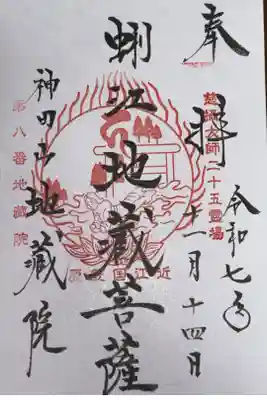 奉拝
令和七年
十一月十四日
慈覚大師二十五霊場
蜊江地蔵菩薩
近江国
神田山地蔵院
第八番地蔵院